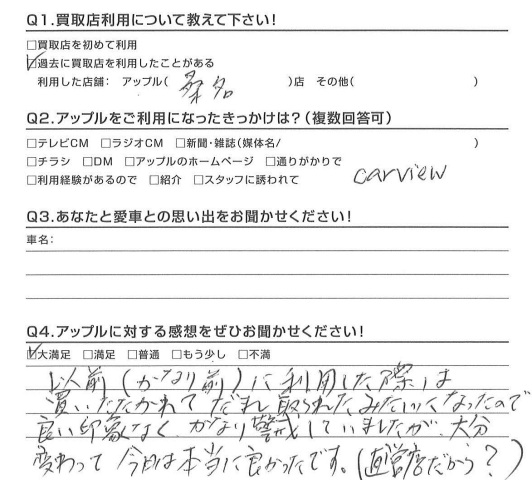 Q1.買取店利用について教えて下さい!
□買取店を初めて利用
☑過去に買取店を利用したことがある
利用した店舗: アップル( 桑名 )店 その他( )
Q2.アップルをご利用になったきっかけは?(複数回答可)
□テレビCM □ラジオCM □新聞・雑誌(媒体名/ )
□チラシ □DM □アップルのホームページ □通りがかりで
□利用経験があるので □紹介 □スタッフに誘われて carview
Q3.あなたと愛車との思い出をお聞かせください!
車名:
Q4.アップルに対する感想をぜひお聞かせください!
☑大満足 □満足 □普通 □もう少し □不満
以前(かなり前)に利用した際は
買いたたかれて だまし取られたみたいになったので
良い印象なく、かなり警戒していましたが、大分
変わって 今日は本当に良かったです。(直営店だから?)